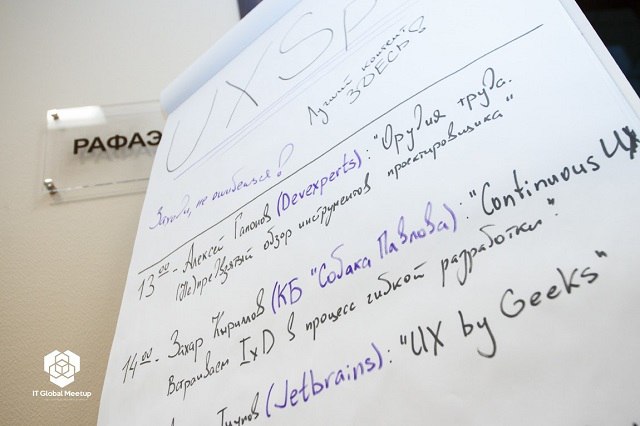 РАФАЭ
UXSP
Лучший контент
ЗДЕСЬ!
Заходи, не ошибёшься!
13 00 - Алексей (Devexperts): "Орудия труда.
(Не)предвзятый обзор инструментов проектировщика"
14 00 - Захар Кириллов (КБ "Собака Павлова): "Continuous UX
Встраиваем IxD в процесс гибкой разработки".
(Jetbrains): "UX by Geeks"
IT Global Meetup